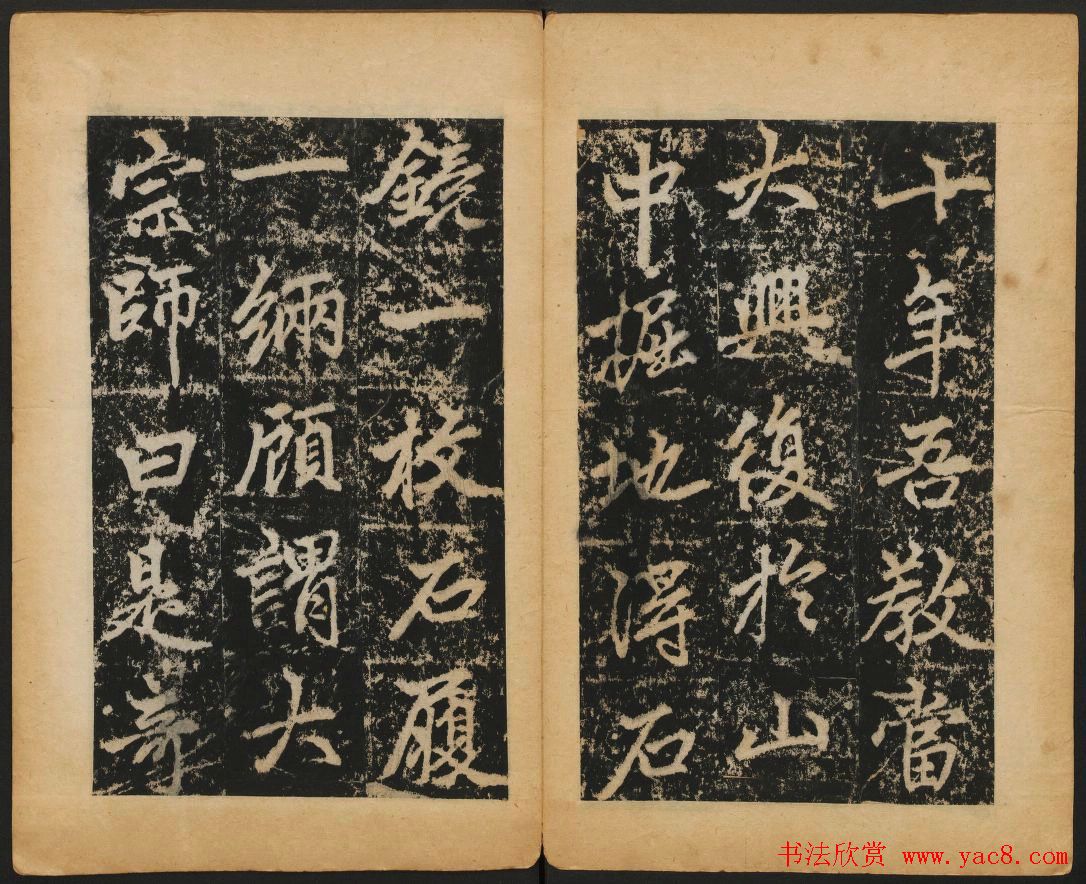 十年吾教當
大興復於山
中掘地得石
鏡一枚石履
一緉顧謂大
宗師曰是奇
书法欣赏 www.yac8.com